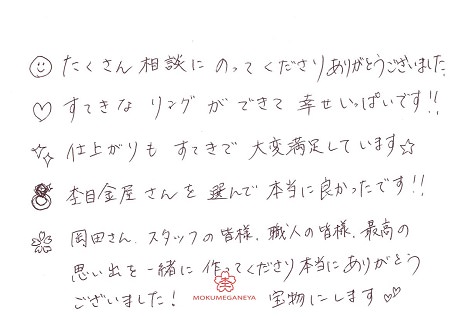 たくさん相談にのってくださりありがとうございました
すてきなリングができて幸せいっぱいです!!
仕上がりもすてきで大変満足しています☆
杢目金屋さんを選んで本当に良かったです!!
岡田さん、スタッフの皆様、職人の皆様、最高の
思い出を一緒に作ってくださり本当にありがとう
ございました! 宝物にします♡♡
MOKUMEGANEYA